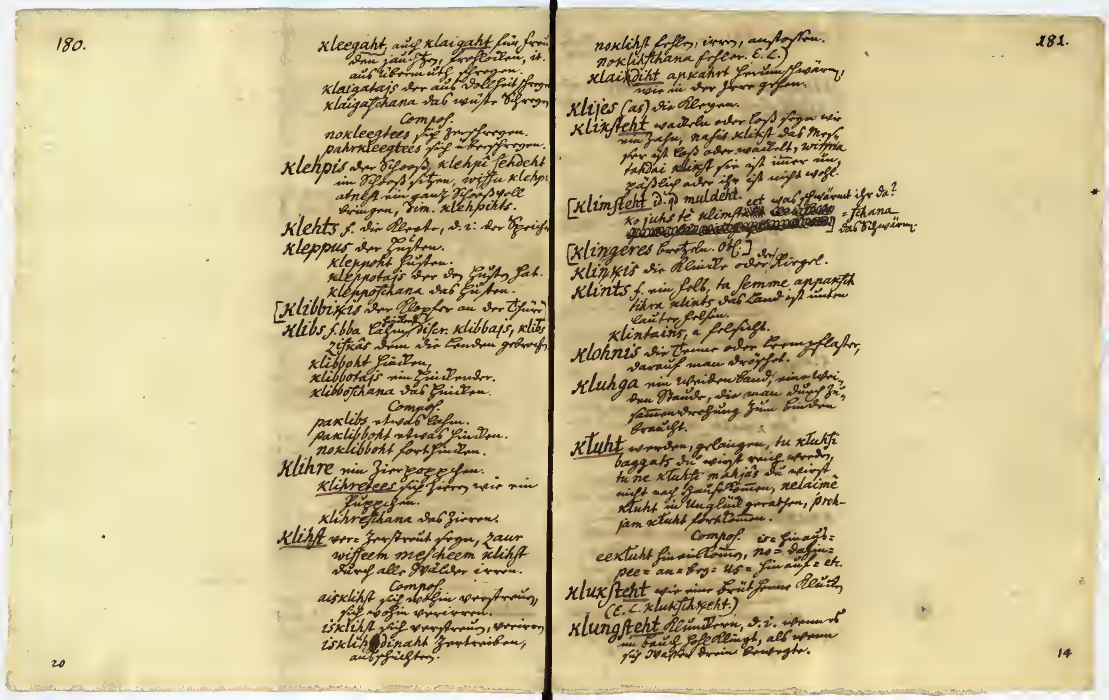 180.
kleegaht, auch klaigaht für Freu
den jauchzen, frohlocken, it.
aus übermuth schreyen.
klaigatajs der aus Dollheit schreyt
klaigaschana das wüste Schreyen
Compos.
nokleegtees sich zerschreyen.
pahrkleegtees sich überschreyen.
Klehpis der Schooß, klehpî sehdeht
im Schooß sitzen, wissu klehpi
atnest ein ganz Schooßvoll
bringen, Dim. klehpihts.
Klehts f. die Kleete, d. i. der Speicher
Kleppus der Husten.
kleppoht husten.
kleppotajs der den Husten hat.
klepposchana das Husten.
[Klibbikis der Klopfer an der Thüre]
Klibs f. bba lahm, discr. klibbajs, klibs
zisskâs dem die Lenden gebrochen
klibboht hincken,
klibbotajs ein Hinckender.
klibboschana das Hincken.
Compos.
paklibs etwas lahm.
paklibboht etwas hincken.
noklibboht forthincken.
Klihre ein Zierpoppchen.
klihretees sich zieren wie ein
Püppchen.
klihreschana das Zieren.
Klihst ver- zerstreut seyn, zaur
wisseem mescheem klihst
durch alle Wälder irren.
Compos.
aisklihst sich wohin verstreuen,
sich wohin verirren.
isklihst sich verstreuen, verirren
isklihdinaht zertreiben,
ausschichten.
20
181.
noklihst fehlen, irren, anstoßen.
noklihschana fehler. E. L.)
klaidiht apkahrt herumschwärmen,
wie in der Irre gehen.
Klijes (as) die Kleyen.
Kliksteht wackeln oder loß seyn wie
ein Zahn, nasis klikst das Mes-
ser ist loß oder wackelt, wissņa
tahdai klikst sie ist immer un-
päßlich oder ihr ist nicht wohl.
[Klimsteht id. qd. muldeht.
ko juhs tê klimst eet was schwärmt ihr da?
= schana
] das Schwärmen
*
[Klingeres bretzeln. Oth.]
Klinkis die Klincke oder der Riegel.
Klints f. ein Fels, ta semme appaksch
tihra klints das Land ist unten
lauter Felsen.
klintains, a felsicht.
Klohnis die Tenne oder Leempflaster,
darauf man dröschet.
Kluhga ein Weidenband, eine Wei-
den Staude, die man durch Zu-
sammendrehung zum binden
braucht.
Kļuht werden, gelangen, tu kļuhsi
baggats du wirst reich werden,
tu ne kļuhsi mahjâs du wirst
nicht nach Hause kommen, nelaimê
kļuht in Unglück gerathen, proh-
jam kļuht fortkommen.
Compos. is= hinaus=
eekļuht hineinkommen, no= dahin=
pee= an= bey= us= hinauf= etc.
Kluksteht wie eine Bruthenne klucken
(E. L. klukschķeht.)
Klungsteht klunckern, d. i. wenn es
im bauch hohl klingt, als wenn
sich Waßer drein bewegte.
14